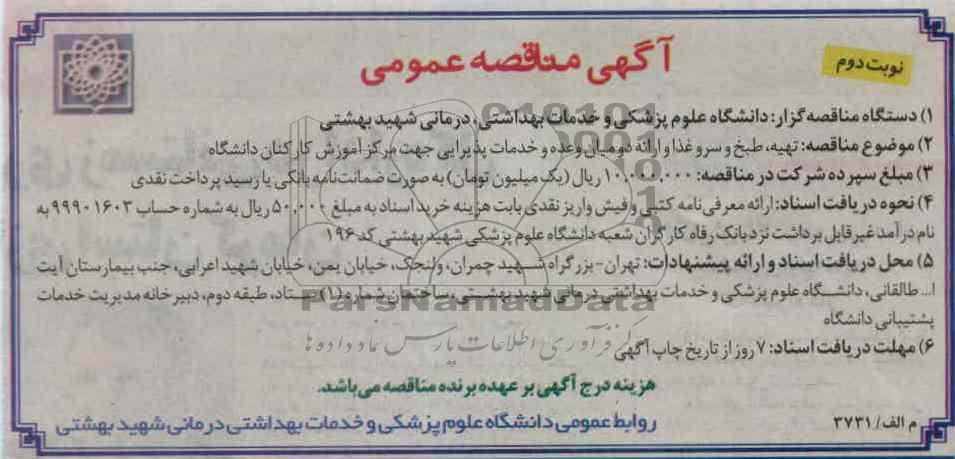 نوبت دوم
آگهی مناقصه عمومی
۱) دستگاه مناقصه‌گزار: دانشگاه علوم پزشکی و خدمات بهداشتی، درمانی شهید بهشتی
۲) موضوع مناقصه: تهیه، طبخ و سرو غذا و ارائه دو میان وعده و خدمات پذیرایی جهت مرکز آموزش کارکنان دانشگاه
۳) مبلغ سپرده شرکت در مناقصه: ۱۰،۰۰۰،۰۰۰ ریال (یک میلیون تومان) به صورت ضمانت‌نامه بانکی یا رسید پرداخت نقدی
۴) نحوه دریافت اسناد: ارائه معرفی‌نامه کتبی و فیش واریز نقدی بابت هزینه خرید اسناد به مبلغ ۵۰،۰۰۰ ریال به شماره حساب ۹۹۹۰۱۶۰۳ به
نام درآمد غیرقابل برداشت نزد بانک رفاه کارگران شعبه دانشگاه علوم پزشکی شهید بهشتی کد ۱۹۶
۵) محل دریافت اسناد و ارائه پیشنهادات: تهران-بزرگراه شهید چمران، ولنجک، خیابان یمن، خیابان شهید اعرابی، جنب بیمارستان آیت
ا... طالقانی، دانشگاه علوم پزشکی و خدمات بهداشتی درمانی شهید بهشتی، ساختمان شماره (۱) ستاد، طبقه دوم، دبیرخانه مدیریت خدمات
پشتیبانی دانشگاه
ParsNamadData
مرکز فرآوری اطلاعات پارس نماد داده ها
۶) مهلت دریافت اسناد: ۷ روز از تاریخ چاپ آگهی
هزینه درج آگهی بر عهده برنده مناقصه می‌باشد.
روابط عمومی دانشگاه علوم پزشکی و خدمات بهداشتی درمانی شهید بهشتی
م الف/ ۳۷۳۱